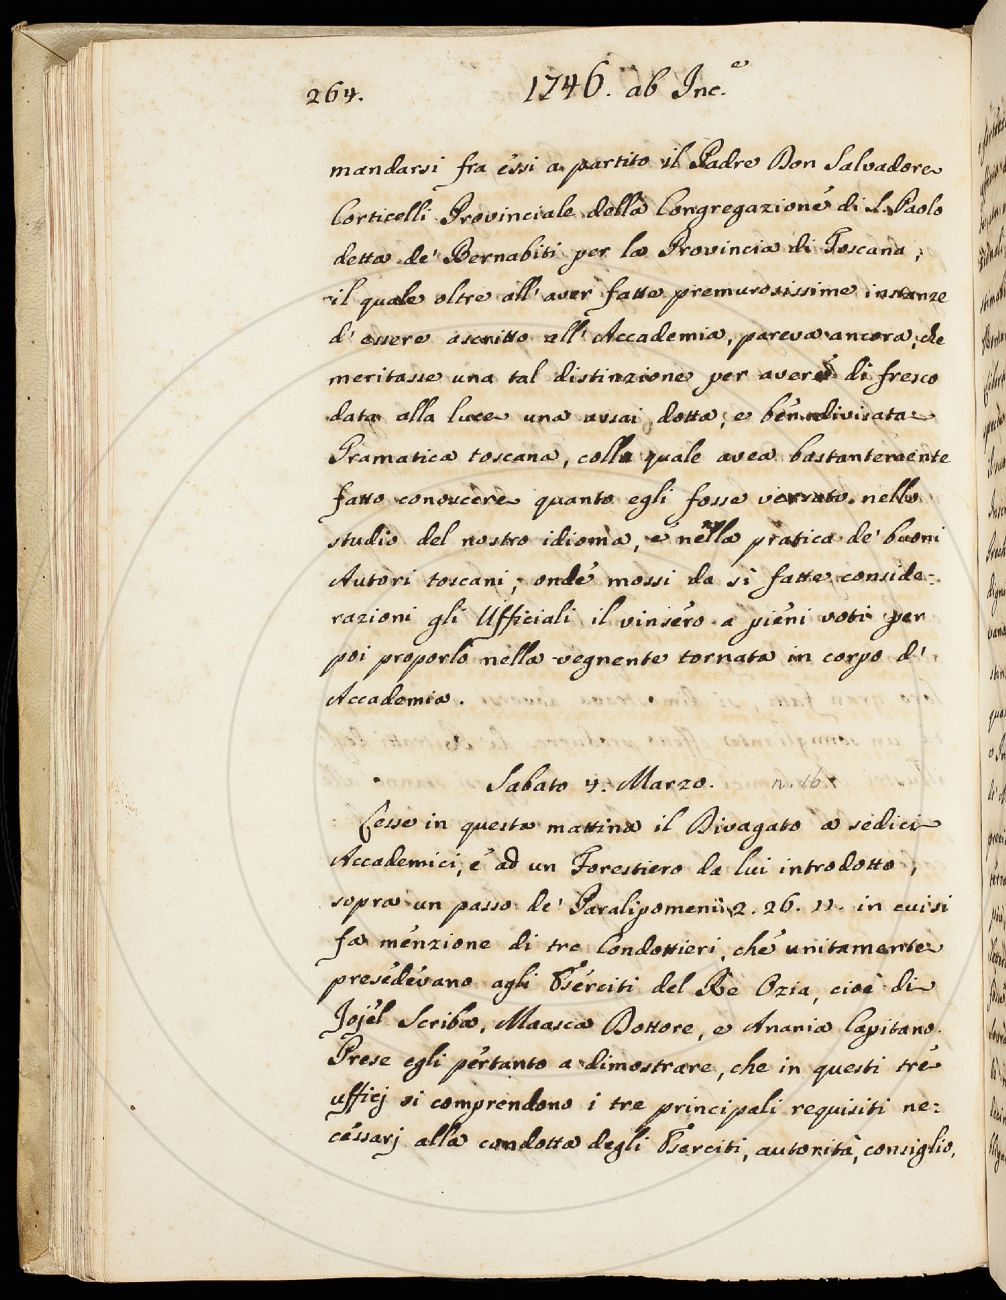 264.
1746. ab Inc.e
mandarsi fra essi a partito il Padre Don Salvadore
Corticelli Provinciale della Congregazione di S. Paolo
detta de' Bernabiti per la Provincia di Toscana,
il quale oltre all' aver fatte premurosissime instanze
d' essere ascritto all' Accademia, pareva ancora, che
meritasse una tal distinzione per aver di fresco
data alla luce una assai dotta, e ben divisata
Gramatica toscana, colla quale avea bastantemente
fatto conoscere quanto egli fosse versato nello
studio del nostro idioma, e nella pratica de' buoni
Autori toscani; onde mossi da si fatte conside=
razioni gli Ufficiali il vinsero a pieni voti per
poi proporlo nella vegnente tornata in corpo d'
Accademia.
Sabato 4. Marzo. n. 16.
Lesse in questa mattina il Divagato a sedici
Accademici, e ad un Forestiero da lui introdotto,
sopra un passo de' Paralipomeni 2. 26. 11. in cui si
fa menzione di tre Condottieri, che unitamente
presedevano agli Eserciti del Re Ozia, cioè di
Jojel Scriba, Maasca Dottore, e Anania Capitano.
Prese egli pertanto a dimostrare, che in questi tre
ufficj si comprendono i tre principali requisiti ne=
cessarj alla condotta degli Eserciti, autorità, consiglio,